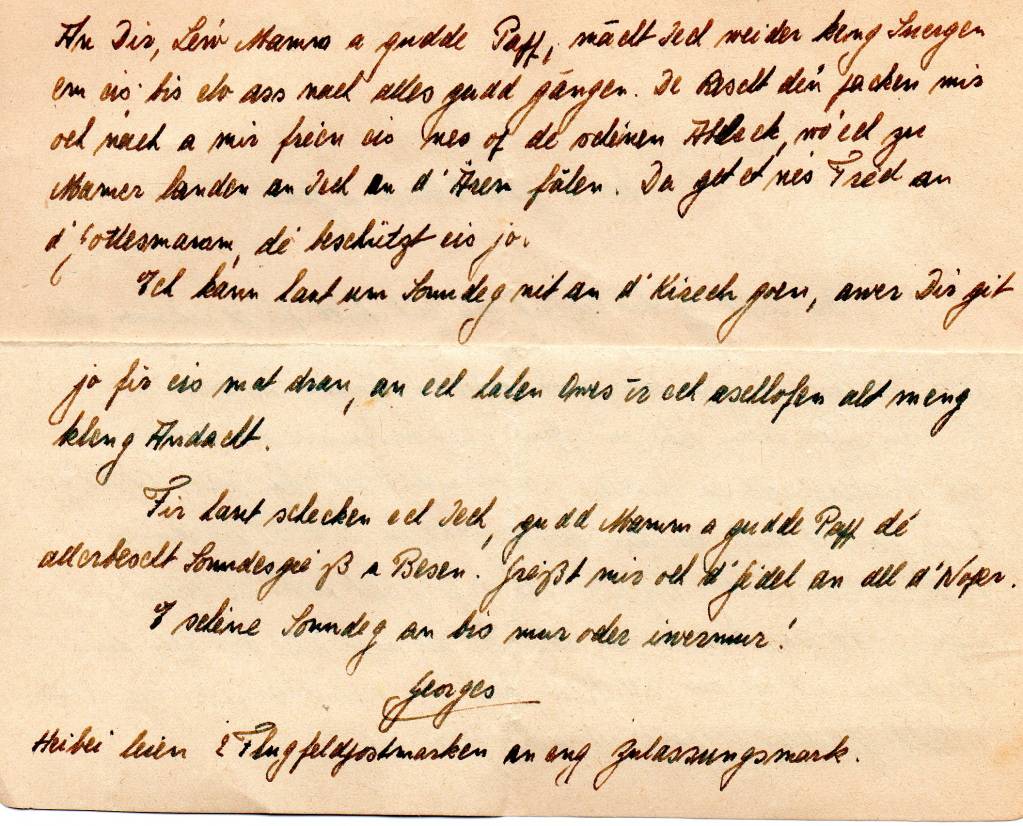 An Dir, Léiw Mamm a gudde Paff, mācht Iech weider keng Suergen
em eis bis elo ass nach alles gudd gāngen. De Rescht dén packen mir
och nach a mir freien eis nes of de schéinen Ableck, wó ech zu
Mamer landen an Iech an d'Ārem fālen. Da get et nés Fréd an
d'Gottesmamm, dé beschützt eis jo.
Ech kann haut um Sonndeg nit an d'Kirech goen, awer Dir git
jo fir eis mat dran, an ech halen Owes ir ech aschlofen alt meng
kleng Andacht.
Fir haut schecken ech Iech, gudd Mamm a gudde Paff dé
allerbescht Sonndesgréiß a Besen. Gréißt mir och d'Gidel an all d'Noper.
E schéine Sonndeg an bis mur oder iwermur!
Georges
Heibei leien 2 Flugfeldpostmarken an eng Zulassungsmark.